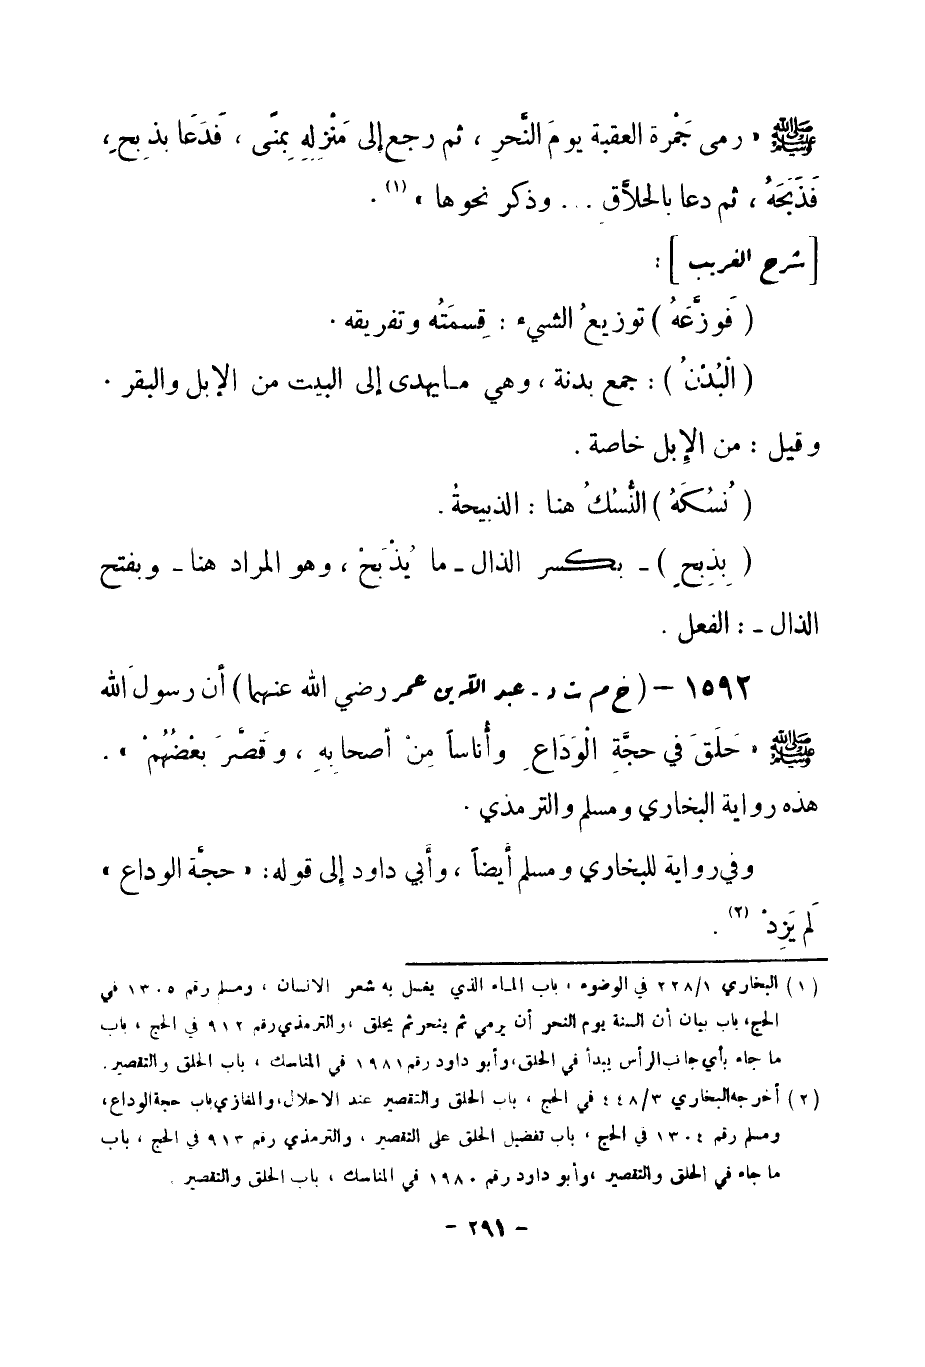 ﷺ « رمى جَمْرة العقبة يومَ النَّحرِ ، ثم رجع إلى مَنْزِلِهِ بِمنًى ، فَدَعَا بذبحٍ ،
فَذَبَحَهُ ، ثم دعا بالحلاَّقِ ... وذكر نحوها » (١) .
[ شرح الغريب ] :
( فَوزَّعَهُ ) توزيعُ الشيء : قِسمَتُه وتفريقه .
( الْبُدْنُ ) : جمع بدنة ، وهي مايهدى إلى البيت من الإبل والبقر .
وقيل : من الإبل خاصة .
( نُسُكَهُ ) النُّسُكُ هنا : الذبيحةُ .
( بِذِبحٍ ) - بكسر الذال - ما يُذْبَحْ ، وهو المراد هنا - وبفتح
الذال - : الفعل .
١٥٩٢ - ( خ م ت د - عبد الله بن عمر رضي الله عنهما ) أن رسولَ الله
ﷺ « حَلَقَ في حجَّةِ الْوَدَاعِ وأُناساً مِنْ أصحابِهِ ، وقصَّرَ بعْضُهُمْ » .
هذه رواية البخاري ومسلم والترمذي .
وفي رواية للبخاري ومسلم أيضاً ، وأبي داود إلى قوله: « حجَّة الوداع »
لَم يَزِدْ (٢) .
(١) البخاري ٢٢٨/١ في الوضوء ، باب الماء الذي يغسل به شعر الانسان ، ومسلم رقم ١٣٠٥ في
الحج، باب بيان أن السنة يوم النحر أن يرمي ثم ينحر ثم يحلق ، والترمذي رقم ٩١٢ في الحج ، باب
ما جاء بأي جانب الرأس يبدأ في الحلق، وأبو داود رقم ١٩٨١ في المناسك ، باب الحلق والتقصير .
(٢) أخرجه البخاري ٤٤٨/٣ في الحج ، باب الحلق والتقصير عند الاحلال، والمغازي باب حجة الوداع،
ومسلم رقم ١٣٠٤ في الحج ، باب تفضيل الحلق على التقصير ، والترمذي رقم ٩١٣ في الحج ، باب
ما جاء في الحلق والتقصير ، وأبو داود رقم ١٩٨٠ في المناسك ، باب الحلق والتقصير .
- ٢٩١ -